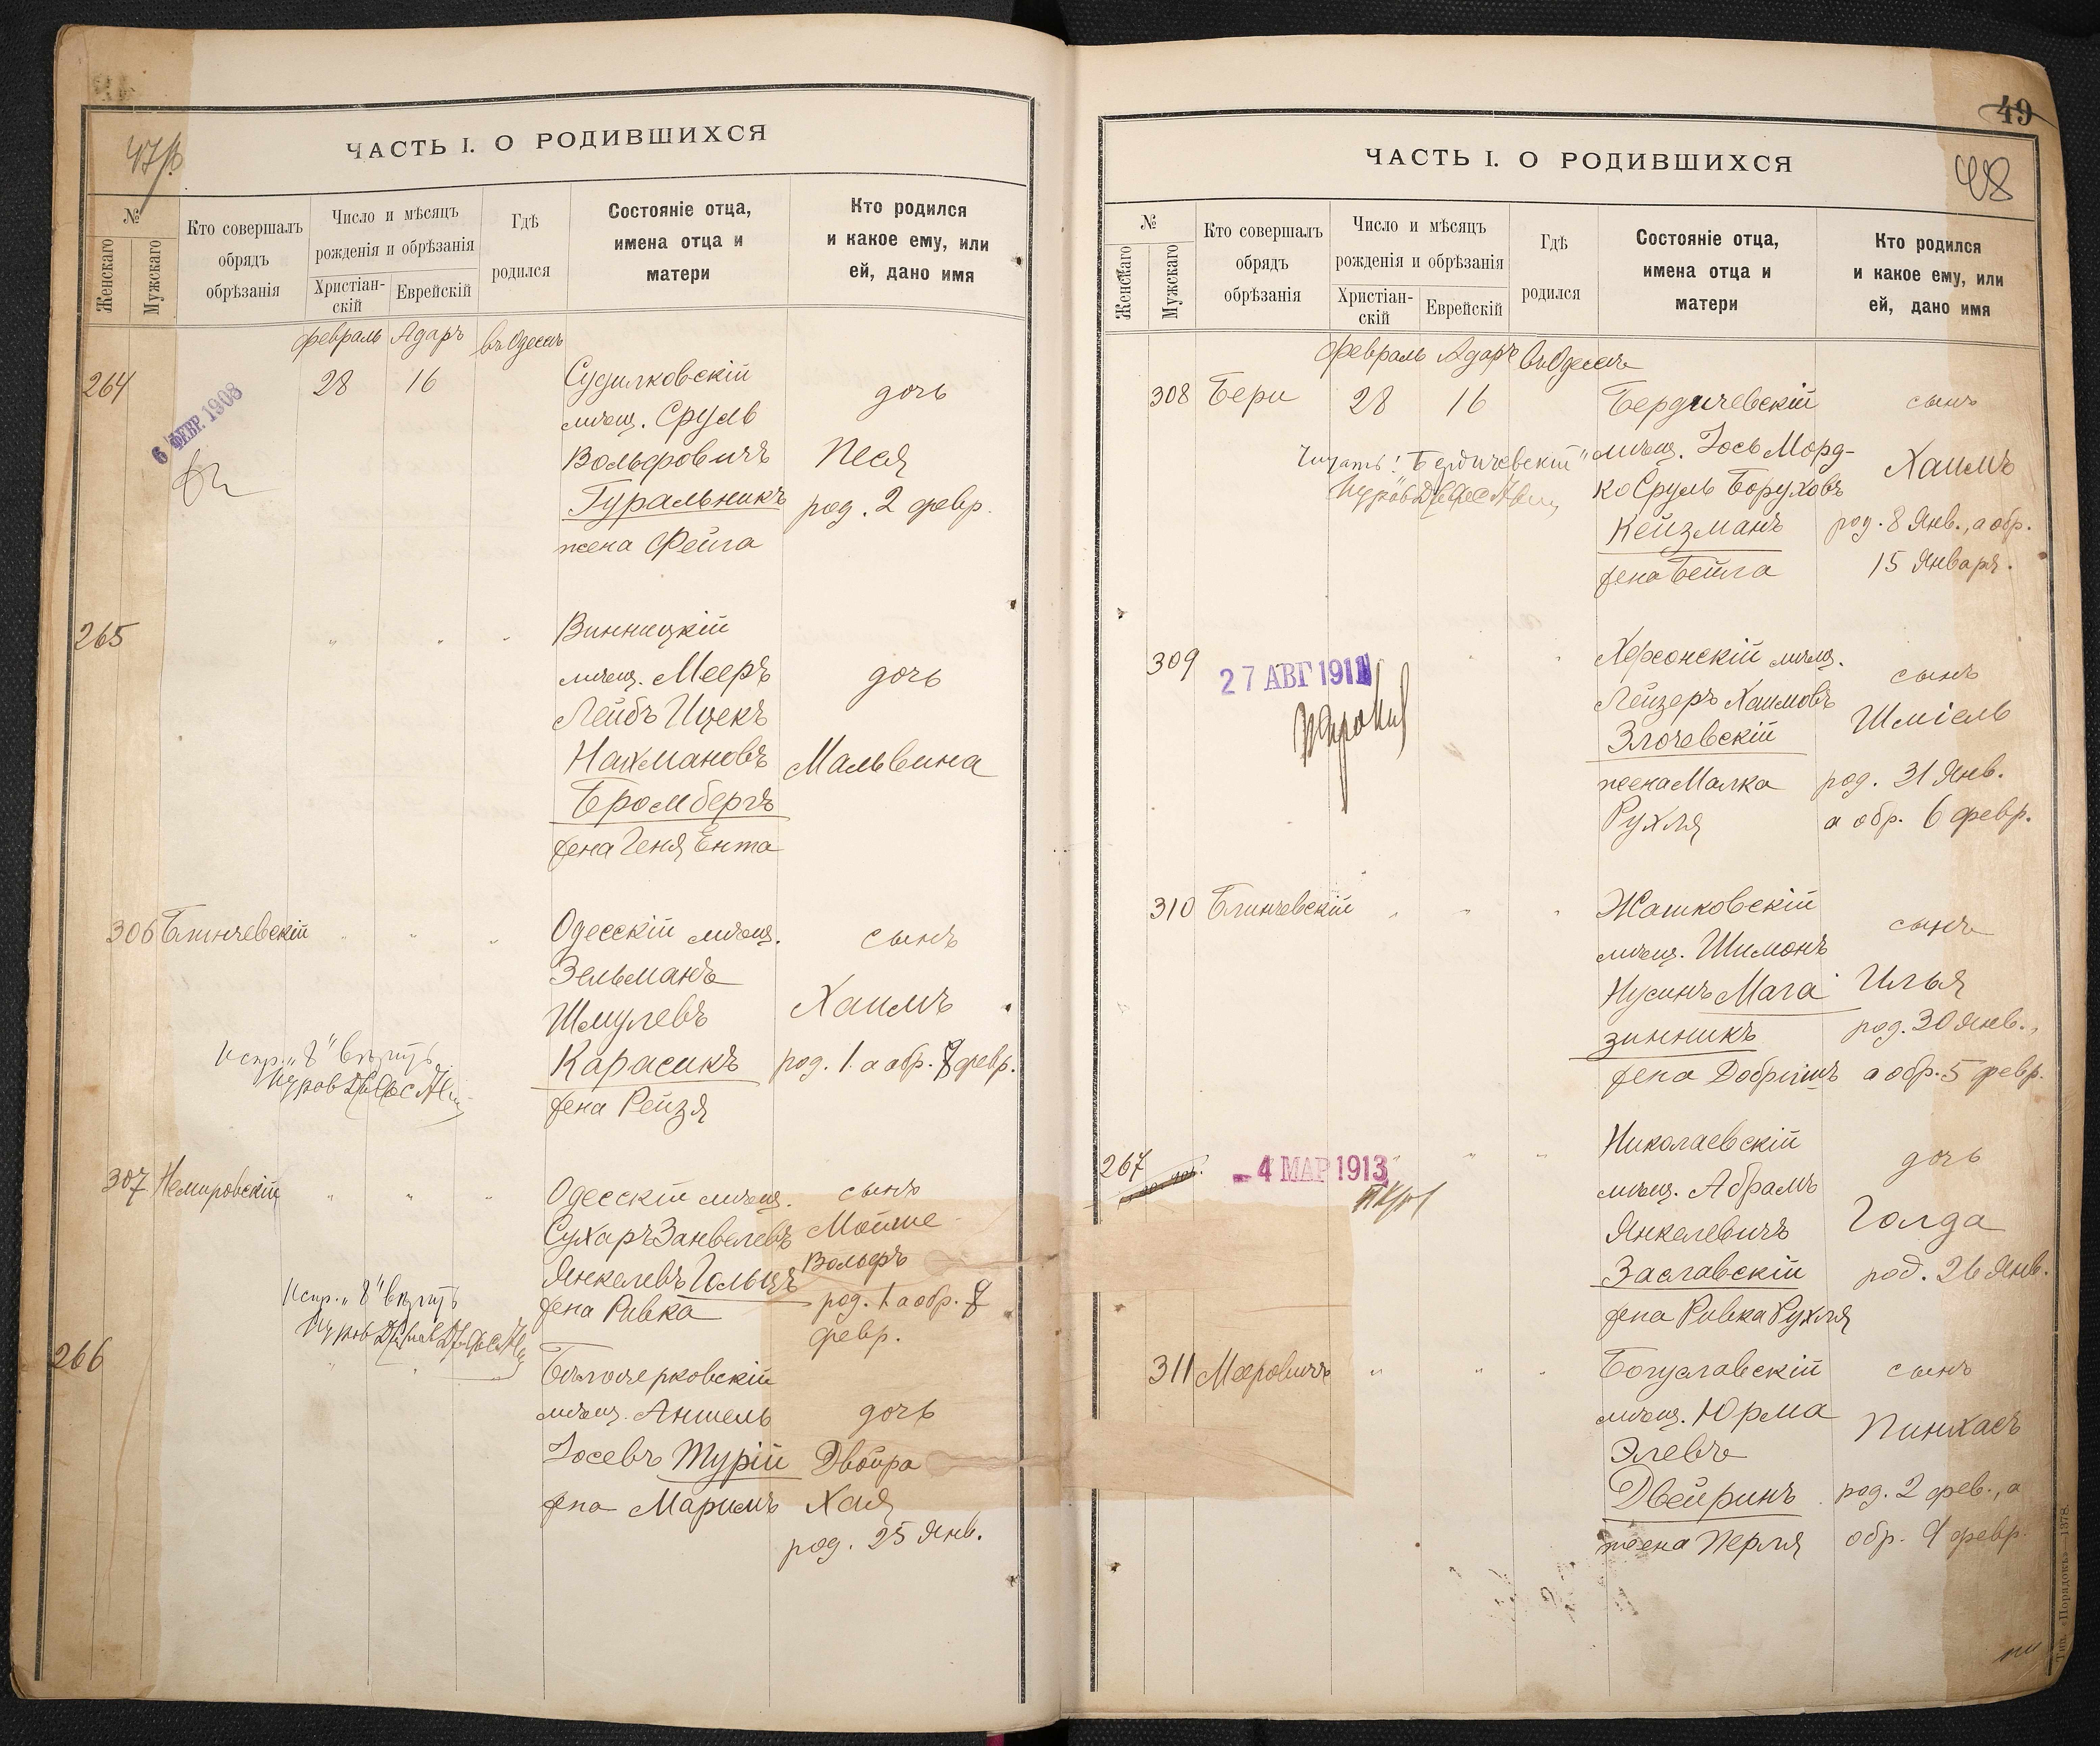 47/б
ЧАСТЬ I. О РОДИВШИХСЯ
№
Женскаго
Мужскаго
Кто совершалъ
обрядъ
обрѣзанія
Число и мѣсяцъ
рожденія и обрѣзанія
Христіан-
скій
Еврейскій
Гдѣ
родился
Состояніе отца,
имена отца и
матери
Кто родился
и какое ему, или
ей, дано имя
февраль Адаръ въ Одессѣ
264
6 ФЕВР. 1908
28 16
Судилковскій
мѣщ. Сруль
Вольфовичъ
Гуральникъ
жена Фейга
дочь
Песя
род. 2 февр.
265 " " "
Винницкій
мѣщ. Мееръ
Лейбъ Ицекъ
Нахмановъ
Бромбергъ
жена Геня Ента
дочь
Мальвина
306 Блинчевскій " " "
Одесскій мѣщ.
Зельманъ
Шмулевъ
Карасикъ
жена Рейзя
сынъ
Хаимъ
род. 1 а обр. 8 февр.
Испр. "8" вѣрить
307 Немировскій " " "
Одесскій мѣщ.
Сухаръ Занвелевъ
Янкелевъ Гольцъ
жена Ривка
сынъ
Мойше
Вольфъ
род. 1 а обр. 8
февр.
Испр. "8" вѣрить
266 " "
Бѣлоцерковскій
мѣщ. Аншель
Іосевъ Турій
жена Маримъ
дочь
Двойра
Хая
род. 25 Янв.
49
48
ЧАСТЬ I. О РОДИВШИХСЯ
№
Женскаго
Мужскаго
Кто совершалъ
обрядъ
обрѣзанія
Число и мѣсяцъ
рожденія и обрѣзанія
Христіан-
скій
Еврейскій
Гдѣ
родился
Состояніе отца,
имена отца и
матери
Кто родился
и какое ему, или
ей, дано имя
февраль Адаръ въ Одессѣ
308 Бери 28 16
Бердичевскій
мѣщ. Іось Морд-
ко Сруль Боруховъ
Кейзманъ
жена Бейла
сынъ
Хаимъ
род. 8 Янв., а обр.
15 Января.
Читать: "Бердичевскій"
309 " "
27 АВГ 1911
Херсонскій мѣщ.
Лейзеръ Хаимовъ
Злочевскій
жена Малка
Рухля
сынъ
Шміель
род. 31 Янв.
а обр. 6 февр.
310 Блинчевскій " " "
Жашковскій
мѣщ. Шимонъ
Нусинъ Мага
зинникъ
жена Добришъ
сынъ
Илья
род. 30 Янв.,
а обр. 5 февр.
267 " " "
- 4 МАР 1913
Николаевскій
мѣщ. Абрамъ
Янкелевичъ
Заславскій
жена Ривка Рухля
дочь
Голда
род. 26 Янв.
311 Мееровичъ " " "
Богуславскій
мѣщ. Юрма
Элевъ
Двейринъ
жена Перля
сынъ
Пинхасъ
род. 2 фев., а
обр. 9 февр.
Тип. «Порядокъ»—1378.